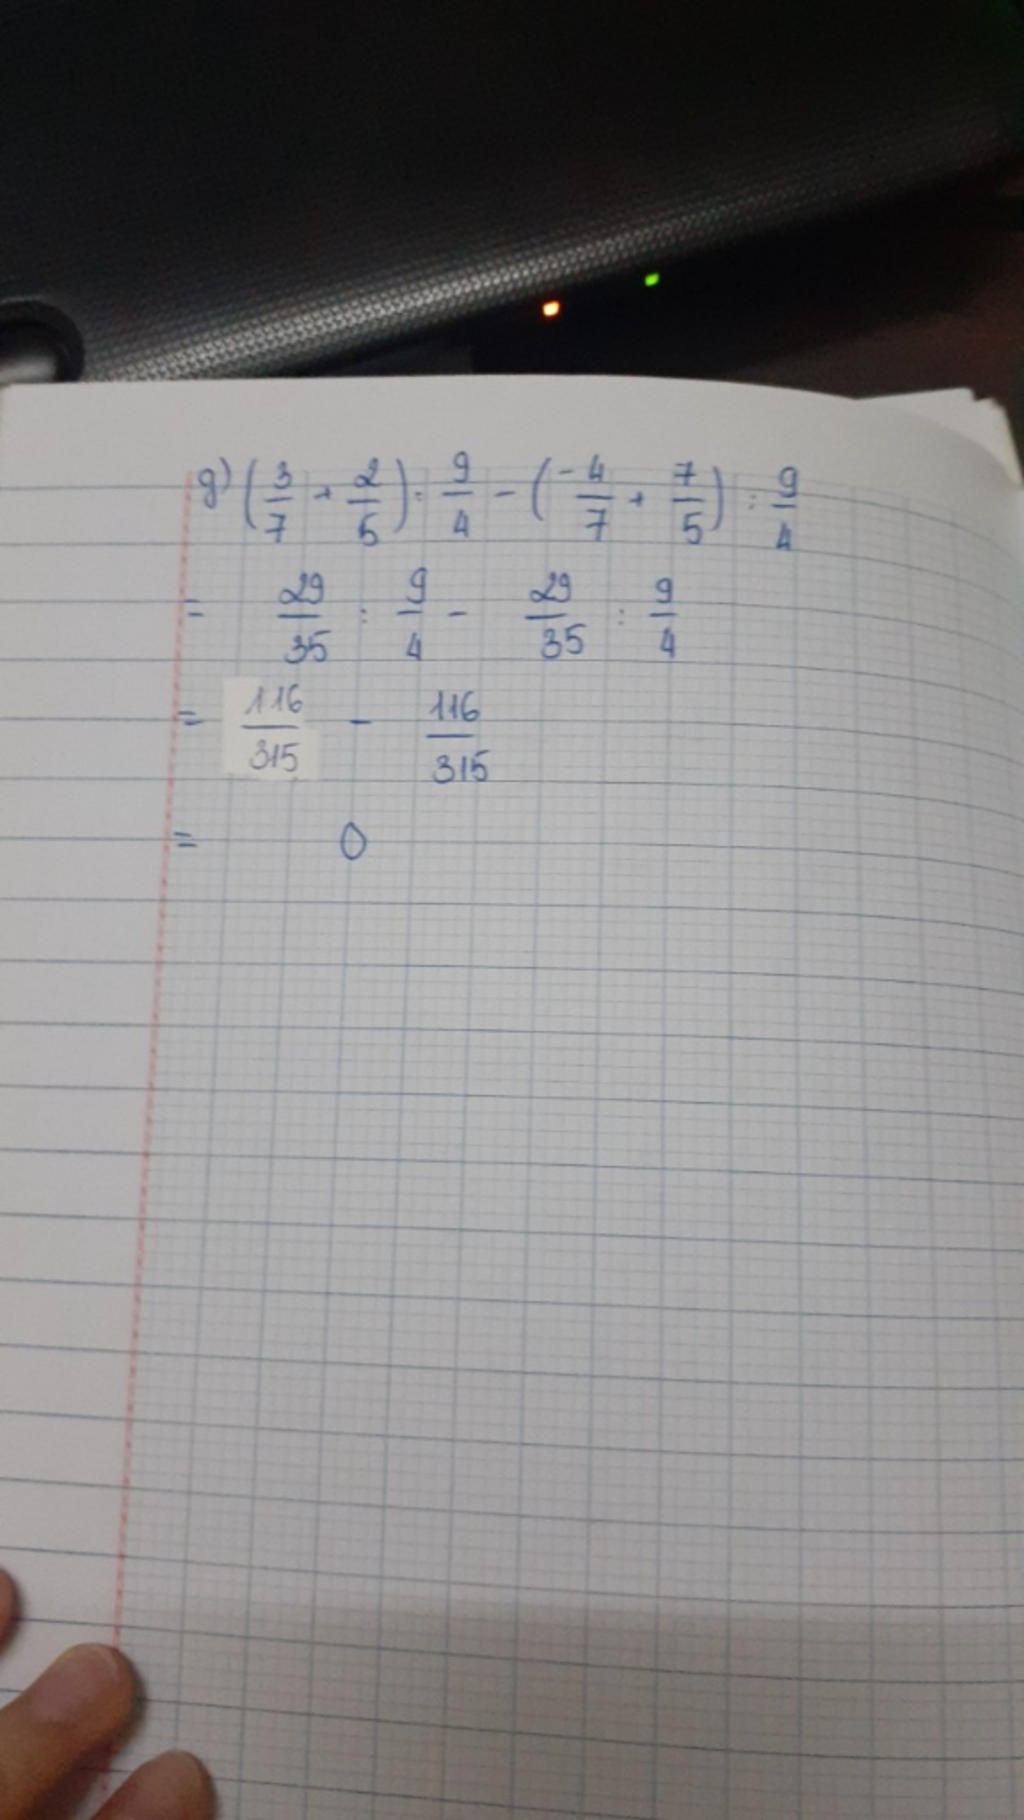 g) (3/7 + 2/5) : 9/4 - (-4/7 + 7/5) : 9/4
= 29/35 : 9/4 - 29/35 : 9/4
= 116/315 - 116/315
= 0